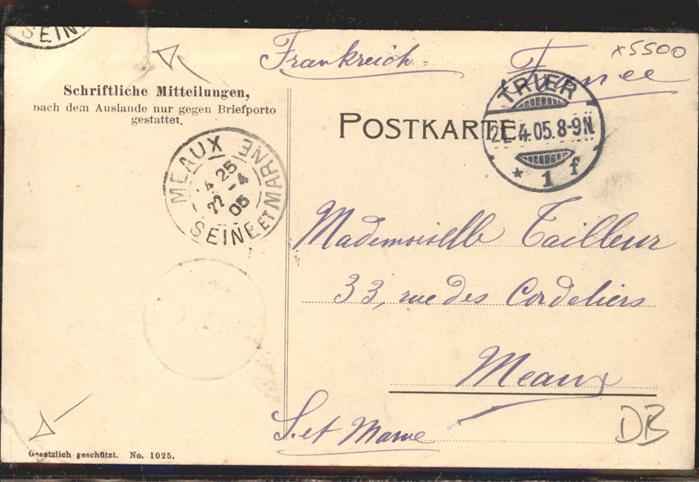 SEINE
Frankreich France
x5500
Schriftliche Mitteilungen,
nach dem Auslande nur gegen Briefporto
gestattet.
POSTKARTE
TRIER
4.05.8-9N
* 1 f
MEAUX
4 25
22 - 4
05
SEINE ET MARNE
Mademoiselle Tailleur
33, rue des Cordeliers
Meaux
S. et Marne
DB
Gesetzlich geschützt. No. 1025.